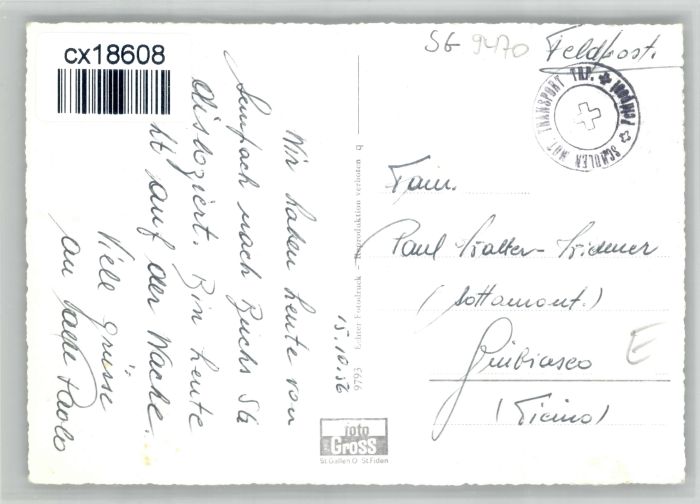 cx18608
SG 9470
Feldpost.
SCHULEN MOT. TRANSPORT TRP. Feldpost
Wir haben heute von
Sempach nach Buchs SG
disloziert. Bin heute
auf der Wache.
Viele Grüsse
an alle Paolo
15.10.52
9793 Lehrer Fotodruck – Reproduktion verboten q
Fam.
Paul Walter-Widmer
(Sottomont.)
Giubiasco
(Ticino)
E
foto
Gross
St. Gallen O - St. Fiden